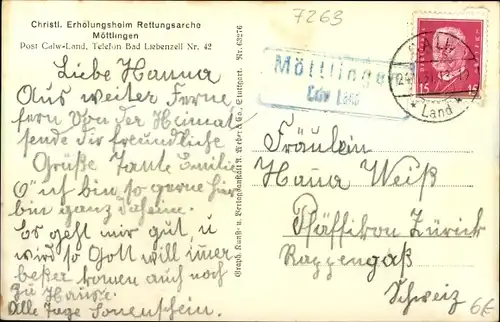 7263
Christl. Erholungsheim Rettungsarche
Möttlingen
Post Calw-Land, Telefon Bad Liebenzell Nr. 42
Liebe Hanna
Aus weiter Ferne
fern von der Heimat
sende dir freundliche
Grüße Tante Emilie
O ich bin so gerne hier
bin ganz daheim.
Es geht mir gut, u
wird so Gott will imer
beßer komen auch noch
zu Hause.
Alle Tage Sonenschein.
Graph. Kunst- u. Verlagsanstalt A. Weber & Co., Stuttgart. Nr. 63276
Möttlingen
Calw Land
15 15
CALW
Land
Fräulein
Hana Weiß
Pfäffikon Zürich
Rappengaß
Schweiz
6€